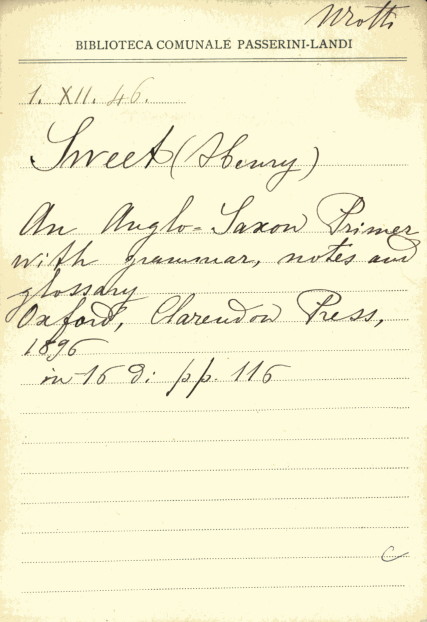 BIBLIOTECA COMUNALE PASSERINI-LANDI
1. XII. 46.
Sweet (Henry)
An Anglo-Saxon Primer
with grammar, notes and
glossary
Oxford, Clarendon Press,
1896
in 16°: pp. 116
C